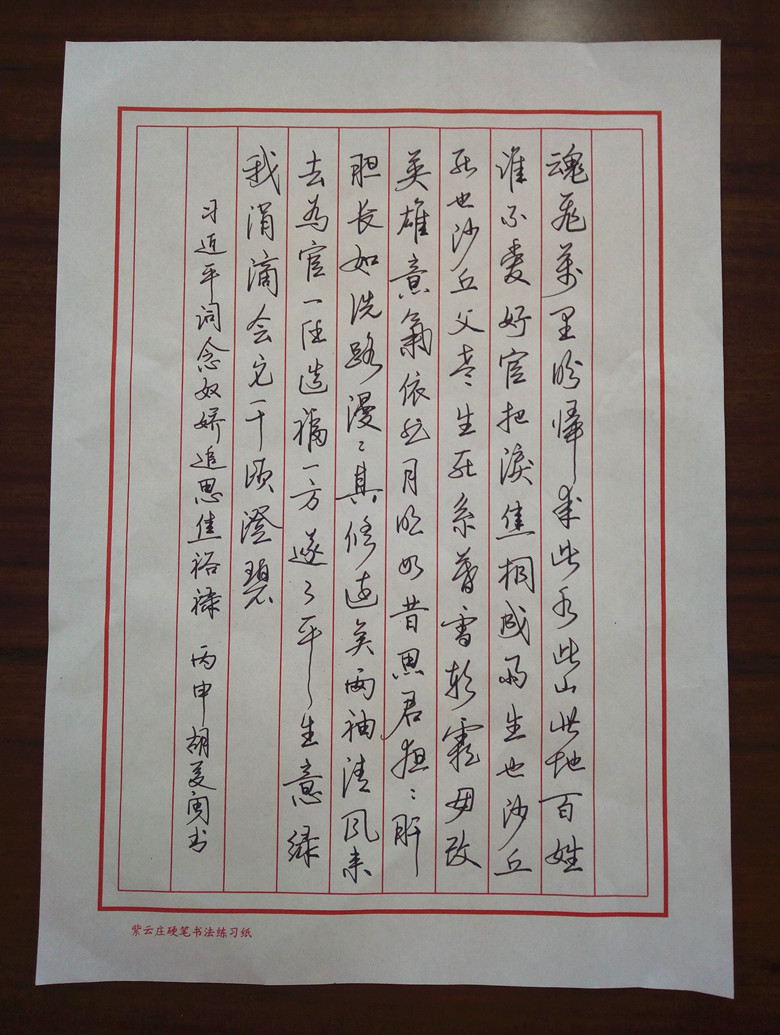 魂飛萬里盼歸來此水此山此地百姓
谁不愛好官把淚焦桐成雨生也沙丘
死也沙丘父老生死系暮雪朝霜毋改
英雄意氣依然月明如昔思君夜夜肝
胆长如洗路漫漫其修远矣两袖清風来
去为官一任造福一方遂了平生意绿
我涓滴会它千顷澄碧
习近平词念奴娇追思焦裕禄 丙申胡
紫云庄硬笔书法练习纸